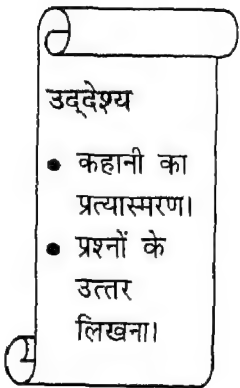 उद्देश्य
• कहानी का
प्रत्यास्मरण।
• प्रश्नों के
उत्तर
लिखना।